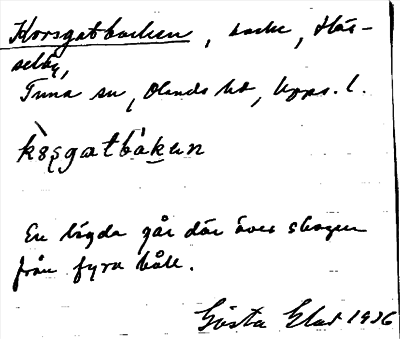 Korsgatbacken, backe, Häs-
selby,
Tuna sn, Olands hd, Upps. l.
En lägda går där över skogen
från fyra håll.
Gösta Elar 1936